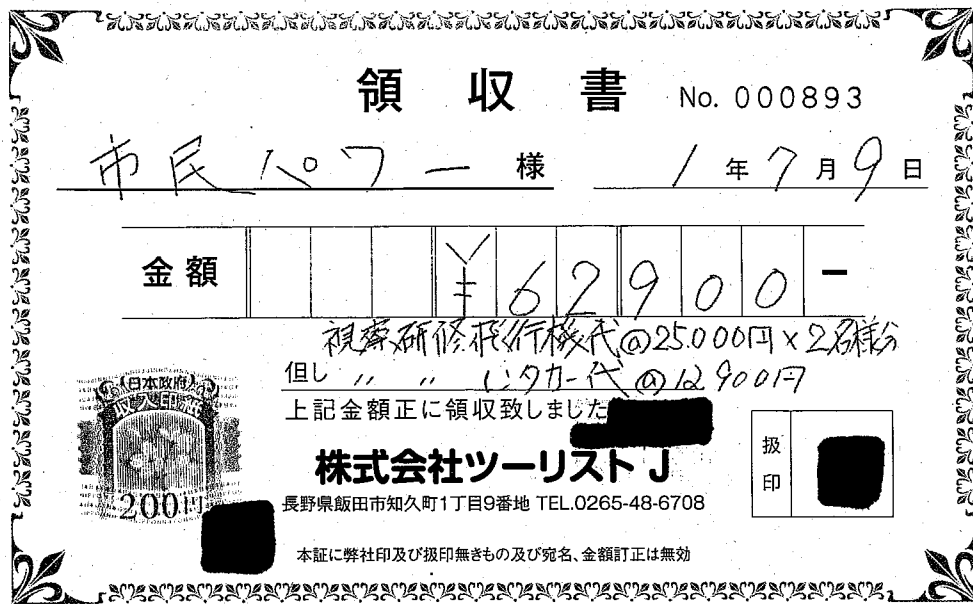 領収書 No. 000893
市民パワー 様 1年7月9日
金額 ¥62900-
視察研修飛行機代@25.000円×2名様分
但し 〃 〃 レンタカー代@12900円
上記金額正に領収致しました
日本政府
収入印紙
200円
株式会社ツーリストJ
扱印
長野県飯田市知久町1丁目9番地 TEL.0265-48-6708
本証に弊社印及び扱印無きもの及び宛名、金額訂正は無効